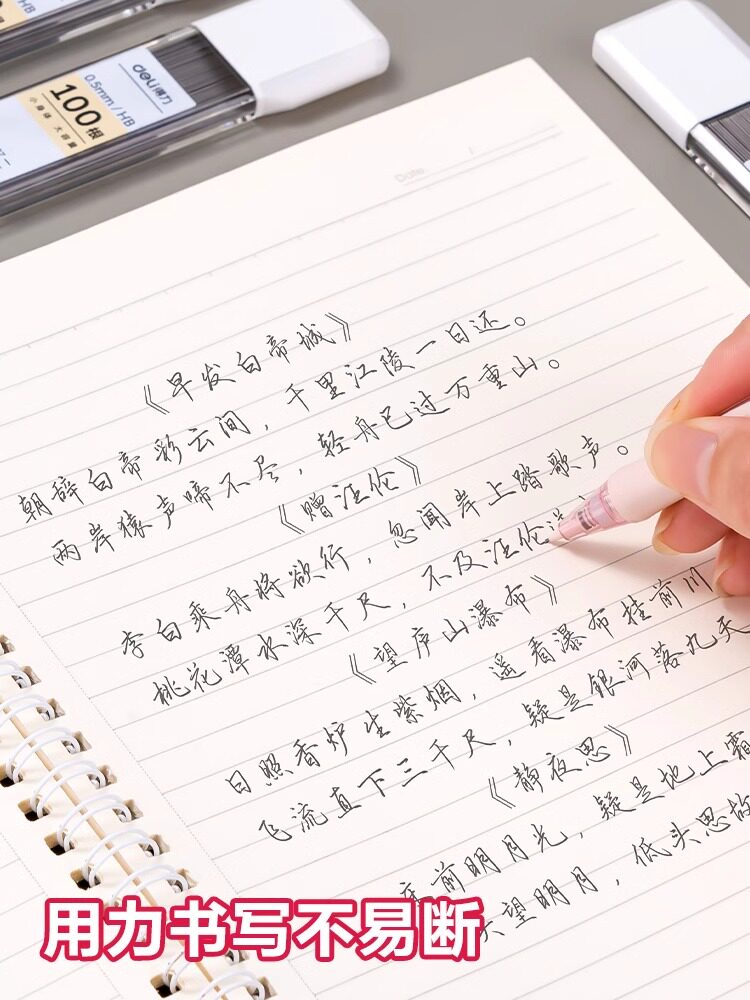 deli得力
0.5mm/HB
100根
小身体 大容量
Date
《早发白帝城》
朝辞白帝彩云间，千里江陵一日还。
两岸猿声啼不尽，轻舟已过万重山。
《赠汪伦》
李白乘舟将欲行，忽闻岸上踏歌声。
桃花潭水深千尺，不及汪伦送
《望庐山瀑布》
日照香炉生紫烟，遥看瀑布挂前川
飞流直下三千尺，疑是银河落九天
《静夜思》
前明月光，疑是地上霜
望明月，低头思故
用力书写不易断